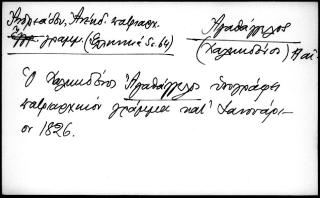 Ἀνδρεάδου, Ἀνέκδ. πατριαρχ.
γράμμ. (Ἑλληνικά δ. 64)
Ἀγαθάγγελος
(Χαλκηδόνος)
Ὁ Χαλκηδόνος Ἀγαθάγγελος ὑπογράφει
πατριαρχικόν γράμμα κατ' Ἰανουάρι-
ον 1826.